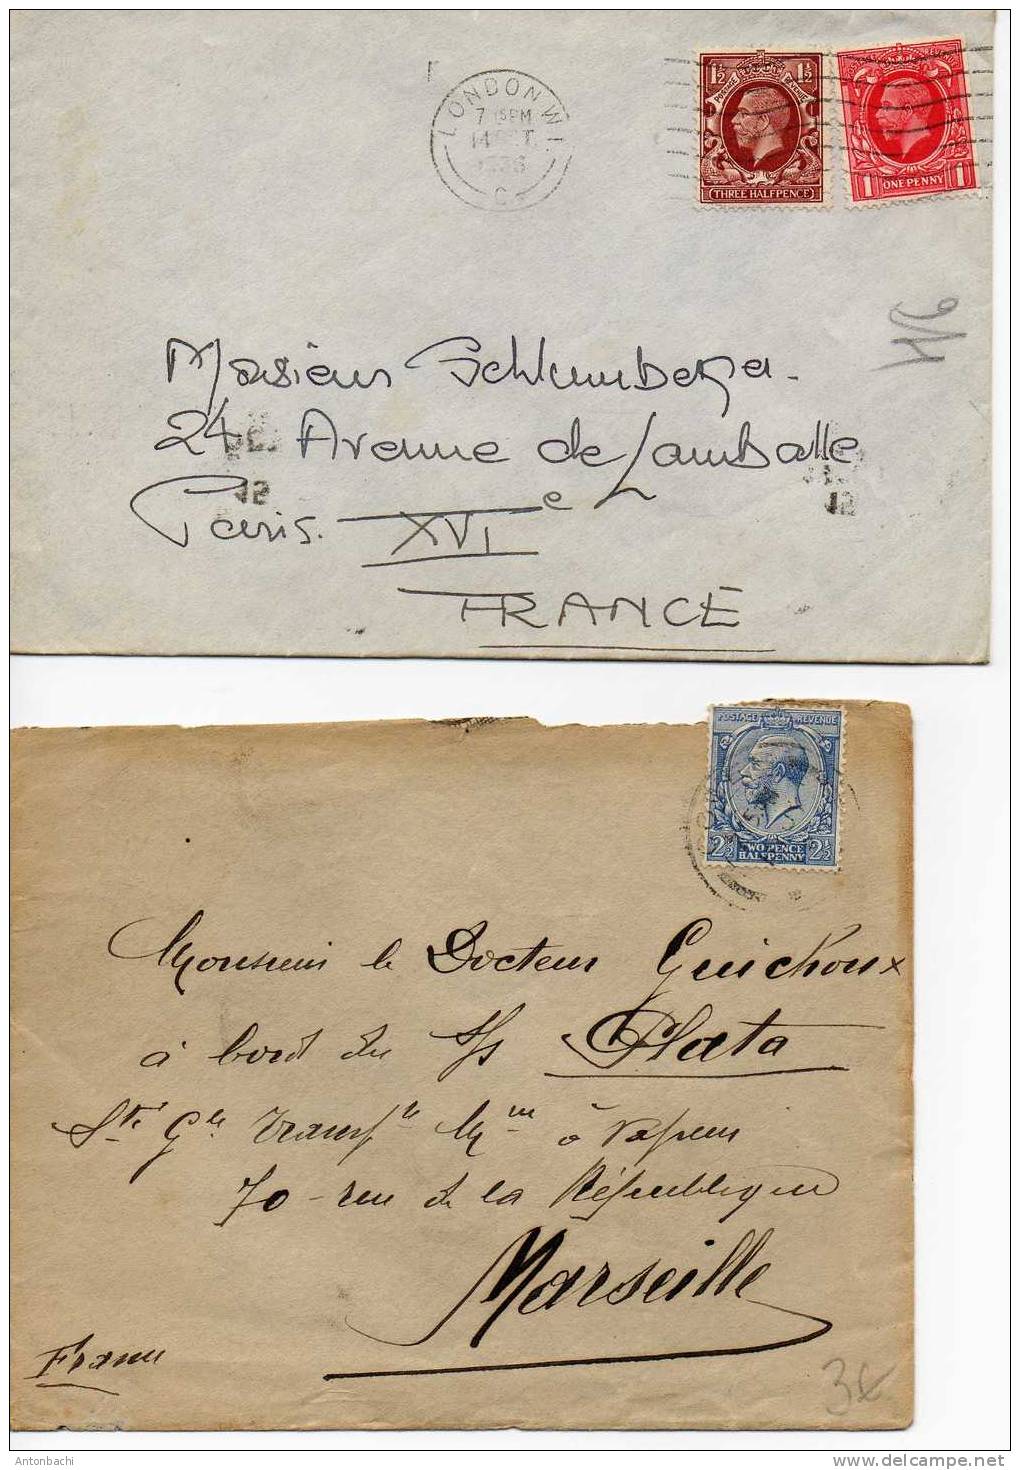 LONDON W.1
7.15 PM
14 OCT
1936
C
1½ 1½
POSTAGE REVENUE
THREE HALFPENCE
POSTAGE REVENUE
1 ONE PENNY 1
Monsieur Schlumberger.
24 Avenue de Lamballe
Paris. XVIe
FRANCE
12
12
POSTAGE REVENUE
2½ TWO PENCE HALFPENNY 2½
Monsieur le Docteur Guichoux
à bord du S/S Plata
Sté Gle Transpts Mmes à Vapeur
70 - rue de la République
Marseille
France
3€
Antonbachi
delcampe.net